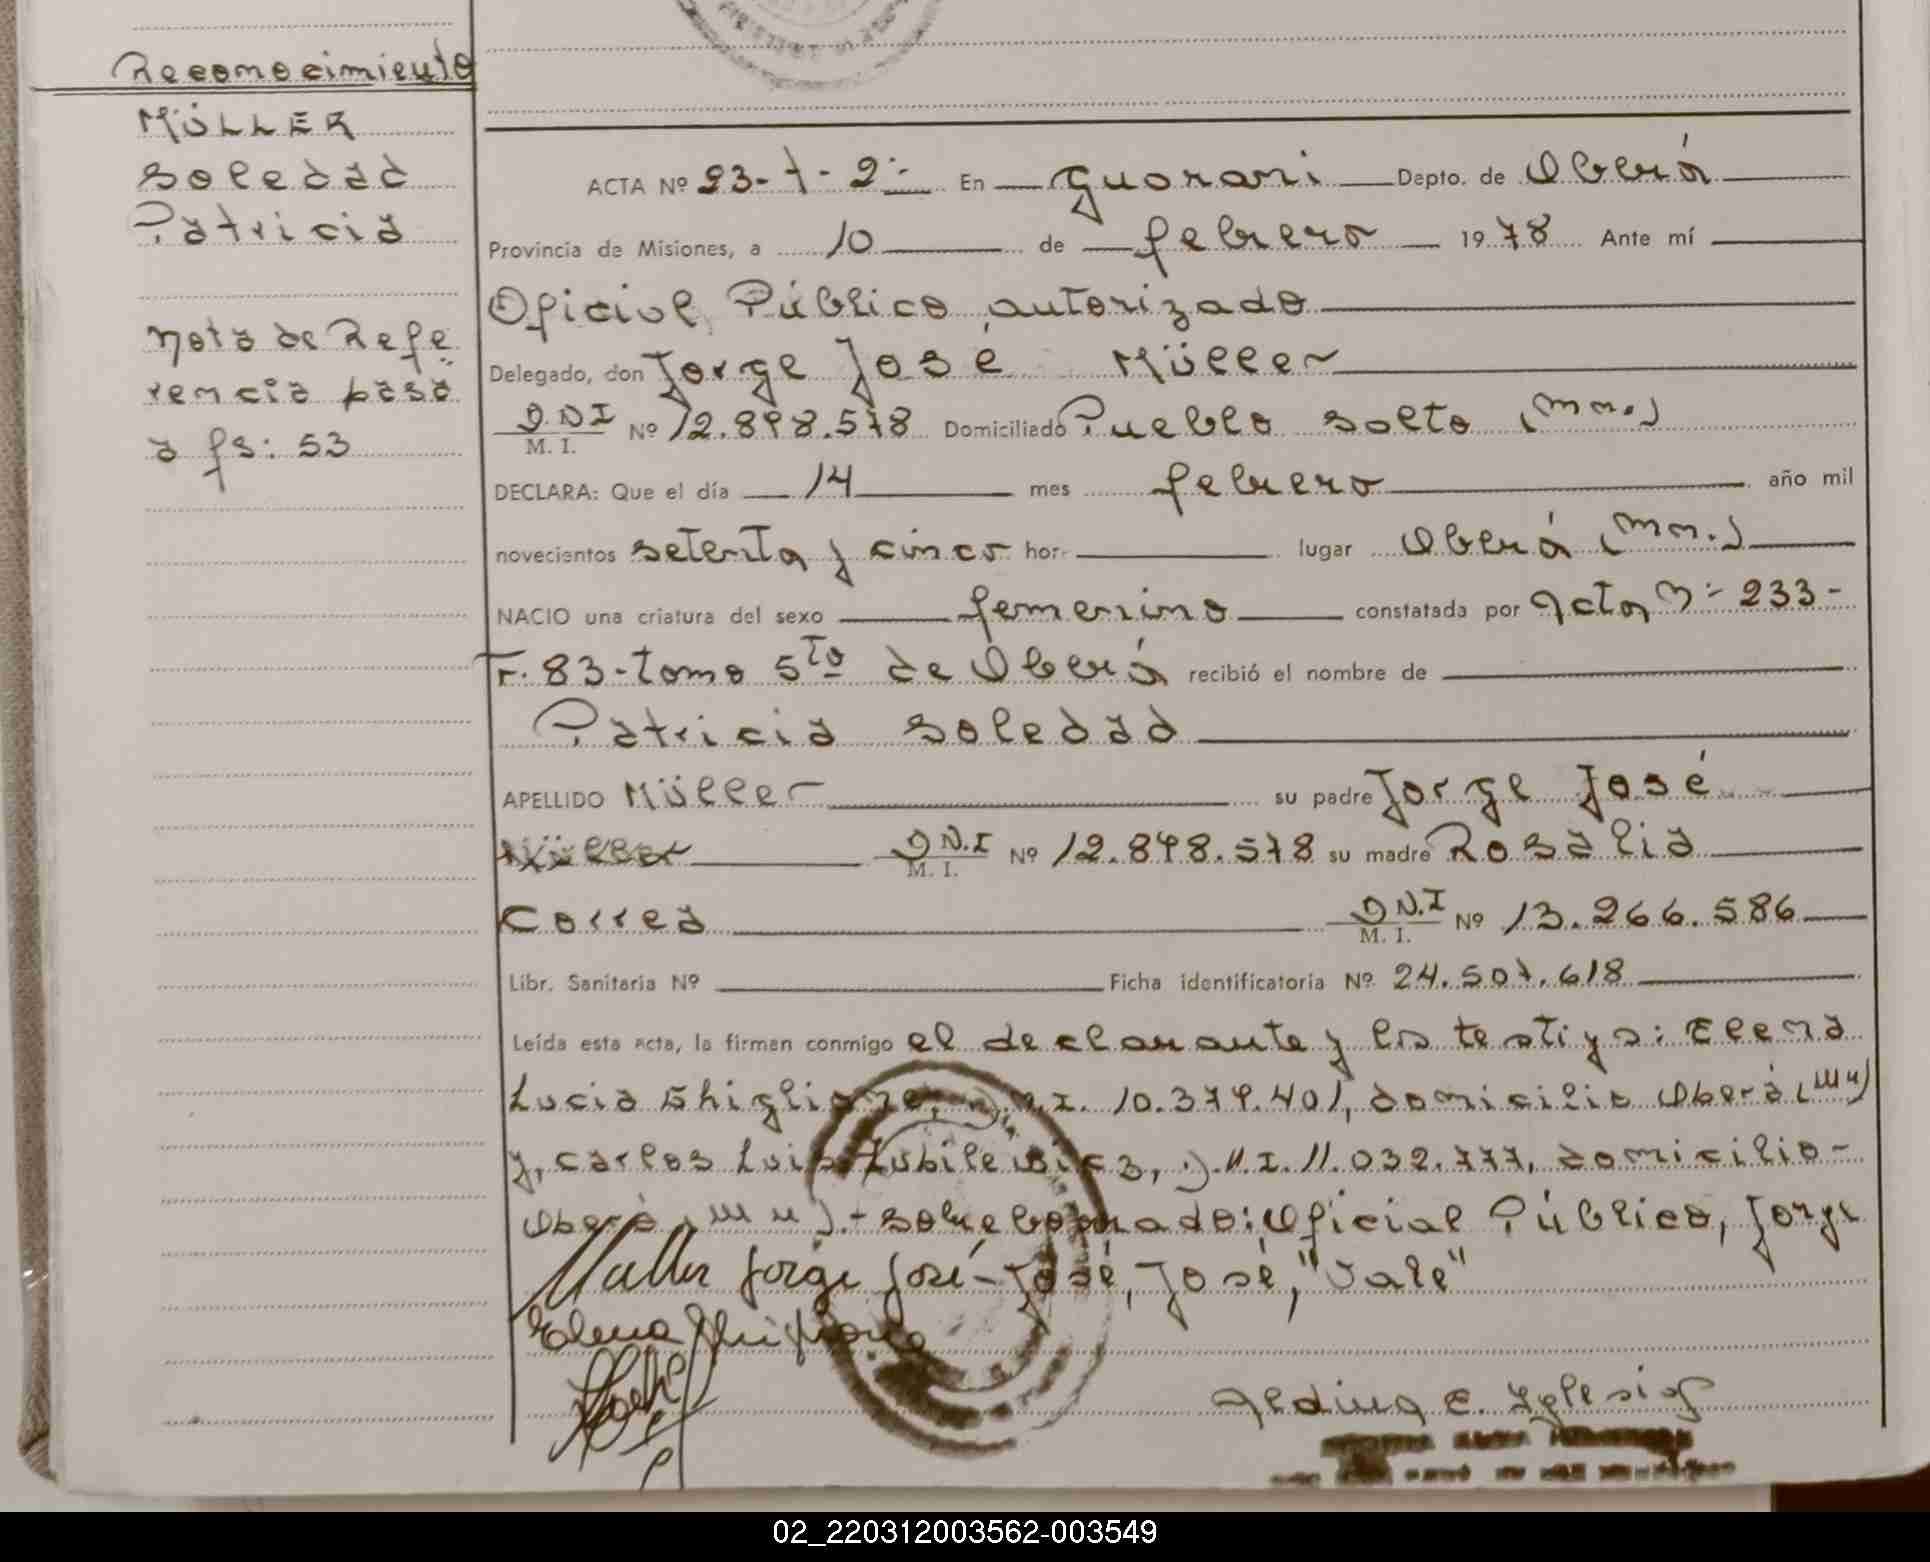 Reconocimiento
MÜLLER
Soledad
Patricia
Nota de Refe
rencia pasa
a fs: 53
ACTA Nº 23-t-2: En Guarani Depto. de Oberá
Provincia de Misiones, a 10 de febrero 1978 Ante mí
Oficial Público autorizado
Delegado, don Jorge José Müller
D.N.I M. I. Nº 12.898.578 Domiciliado Pueblo Salto (Mn.)
DECLARA: Que el día 14 mes febrero año mil
novecientos setenta y cinco hor. lugar Oberá (Mn.)
NACIO una criatura del sexo femenino constatada por Acta Nº 233-
F. 83-Tomo 5to de Oberá recibió el nombre de
Patricia Soledad
APELLIDO Müller su padre Jorge José
Müller D.N.I M. I. Nº 12.898.578 su madre Rosalia
Correa D.N.I M. I. Nº 13.266.586
Libr. Sanitaria Nº Ficha identificatoria Nº 24.507.618
Leída esta acta, la firman conmigo el declarante y los testigos: Elena
Lucia Ghiglione, D.N.I. 10.379.401, domicilio Oberá (Mn)
y, Carlos Luis D.N.I. 11.032.777, domicilio-
Oberá (Mn).- Sobreborrado: Oficial Público, Jorge
Muller Jorge José - José, José, "Vale"
Elena Ghiglione
E. Yglesias
02_220312003562-003549